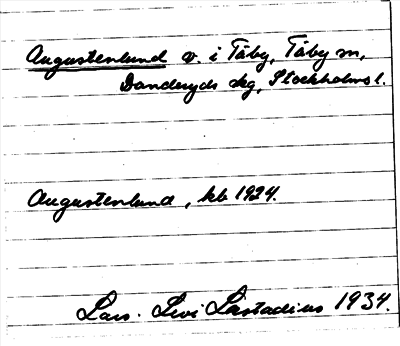 Augustenlund v. i Täby, Täby sn,
Danderyds skg, Stockholms l.
Augustenlund, kb 1924.
Lars-Levi Læstadius 1934.